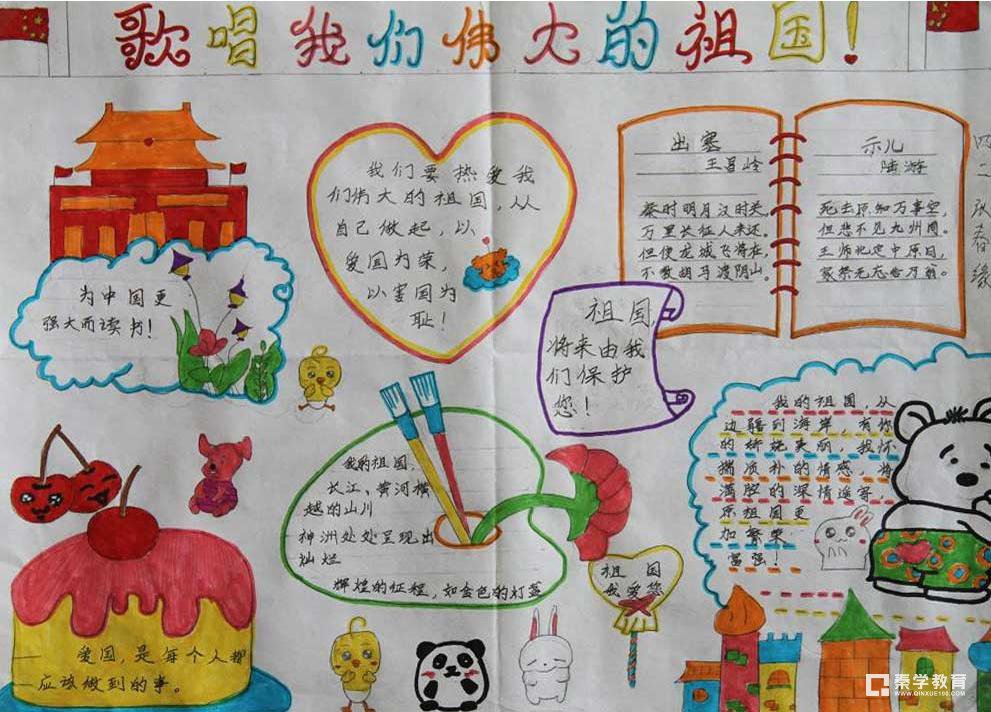 歌唱我们伟大的祖国!
我们要热爱我
们伟大的祖国,从
自己做起,以
爱国为荣,
以害国为
耻!
为中国更
强大而读书!
出塞
王昌岭
秦时明月汉时关,
万里长征人未还。
但使龙城飞将在,
不教胡马渡阴山。
示儿
陆游
死去原知万事空,
但悲不见九州同。
王师北定中原日,
家祭无忘告乃翁。
四二
春缘
祖国,
将来由我
们保护
您!
我的祖国,
长江、黄河横
越的山川
神洲处处呈现出
灿烂
辉煌的征程,如金色的灯盏
我的祖国,从
边疆到海岸,有你
的娇娆美丽,我怀
揣质朴的情感,将
满腔的深情遥寄,
原祖国更
加繁荣
富强!
祖国
我爱您
爱国,是每个人都
应该做到的事。
秦学教育
WWW.QINXUE100.COM